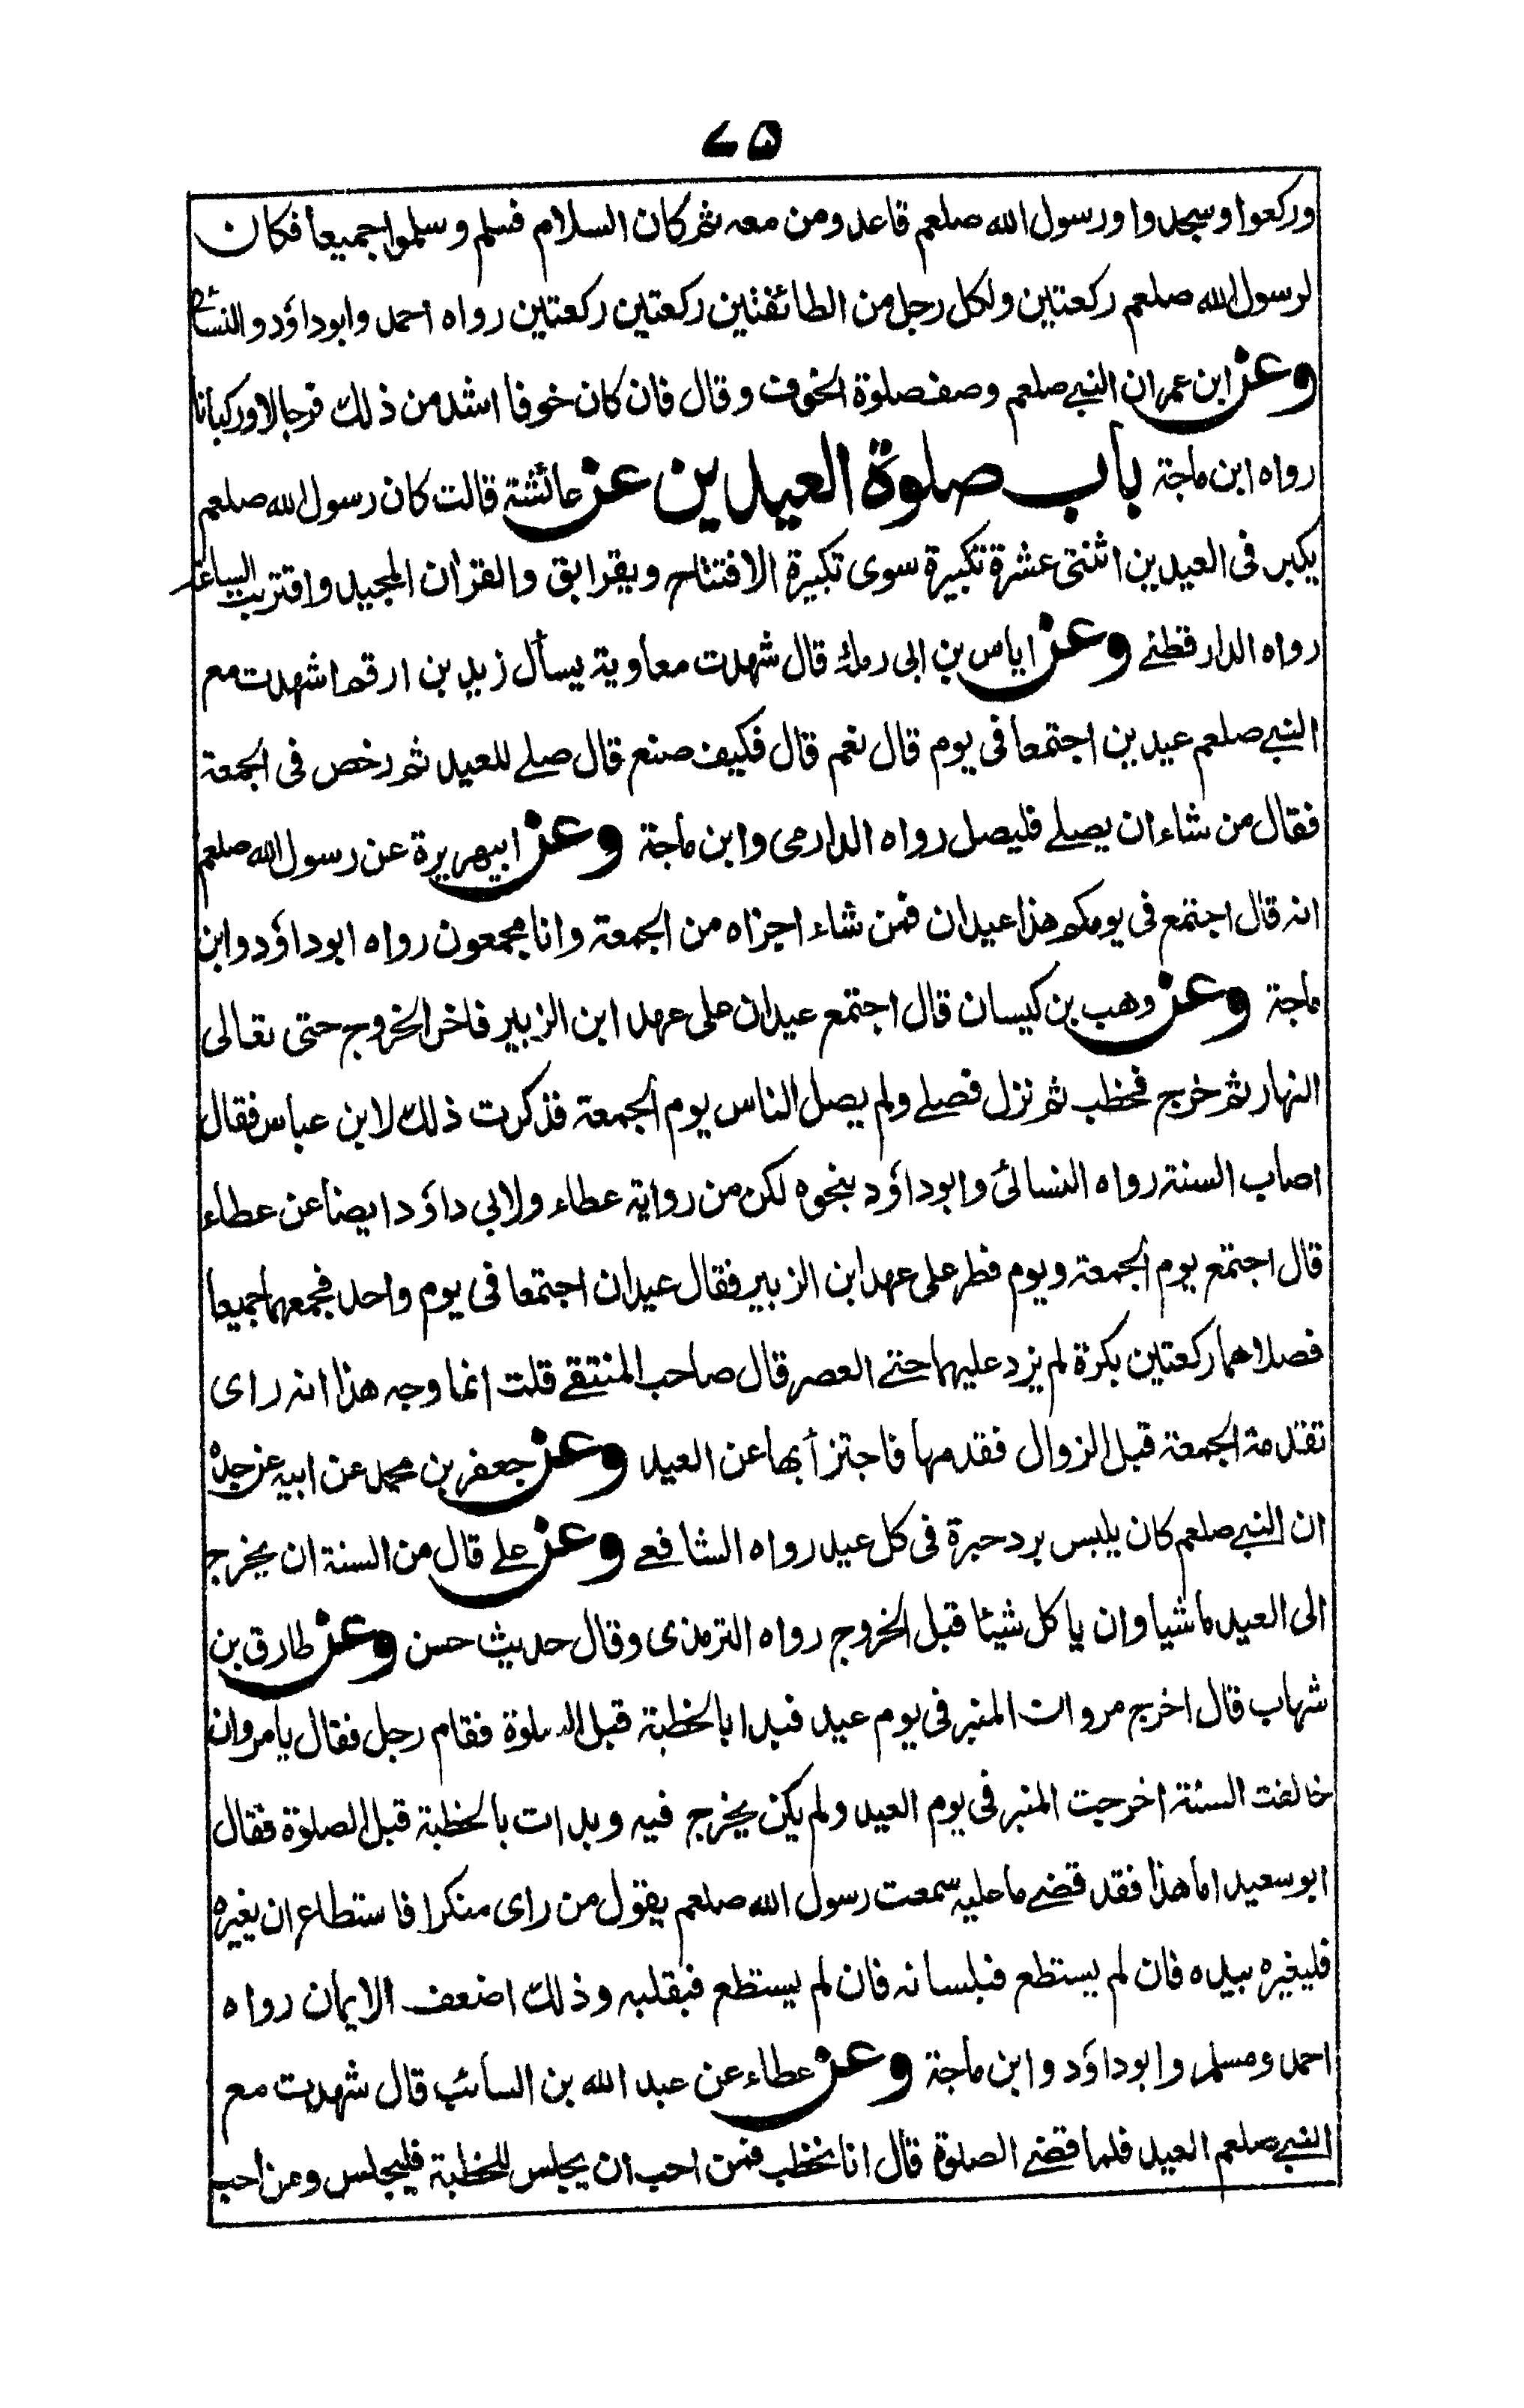 ٧٥
وركعوا وسجدوا ورسول الله صلعم قاعد ومن معه ثم كان السلام فسلم وسلموا جميعا فكان
لرسول الله صلعم ركعتين ولكل رجل من الطائفتين ركعتين ركعتين رواه احمد وابوداؤد والنسائي
وعن ابن عمر ان النبي صلعم وصف صلوة الخوف وقال فان كان خوفا اشد من ذلك فرجالا وركبانا
رواه ابن ماجة باب صلوة العيدين عن عائشة قالت كان رسول الله صلعم
يكبر فى العيدين اثنتى عشرة تكبيرة سوى تكبيرة الافتتاح ويقرا بق والقرأن المجيد واقتربت الساعة
رواه الدارقطني وعن اياس بن ابى رملة قال شهدت معاوية يسأل زيد بن ارقم اشهدت مع
النبي صلعم عيدين اجتمعا فى يوم قال نعم قال فكيف صنع قال صلے للعيد ثم رخص فى الجمعة
فقال من شاء ان يصلے فليصل رواه الدارمى وابن ماجة وعن ابيهريرة عن رسول الله صلعم
انه قال اجتمع فى يومكم هذا عيدان فمن شاء اجزاه من الجمعة وانا مجمعون رواه ابوداؤد وابن
ماجة وعن وهب بن كيسان قال اجتمع عيدان على عهد ابن الزبير فاخر الخروج حتى تعالى
النهار ثم خرج فخطب ثم نزل فصلے ولم يصل الناس يوم الجمعة فذكرت ذلك لابن عباس فقال
اصاب السنة رواه النسائى وابوداؤد بنحوه لكن من رواية عطاء ولابي داؤد ايضا عن عطاء
قال اجتمع يوم الجمعة ويوم فطر على عهد ابن الزبير فقال عيدان اجتمعا فى يوم واحد فجمعهما جميعا
فصلاهما ركعتين بكرة لم يزد عليهما حتے العصر قال صاحب المنتقے قلت انما وجه هذا انه راى
تقدمة الجمعة قبل الزوال فقدمها فاجتزأ بها عن العيد وعن جعفر بن محمد عن ابيه عن جده
ان النبي صلعم كان يلبس برد حبرة فى كل عيد رواه الشافعے وعن علے قال من السنة ان يخرج
الى العيد ماشيا وان ياكل شيئا قبل الخروج رواه الترمذى وقال حديث حسن وعن طارق بن
شهاب قال اخرج مروان المنبر فى يوم عيد فبدا بالخطبة قبل الصلوة فقام رجل فقال يامروان
خالفت السنة اخرجت المنبر فى يوم العيد ولم يكن يخرج فيه وبدات بالخطبة قبل الصلوة فقال
ابوسعيد اما هذا فقد قضے ما عليه سمعت رسول الله صلعم يقول من راى منكرا فاستطاع ان يغيره
فليغيره بيده فان لم يستطع فبلسانه فان لم يستطع فبقلبه وذلك اضعف الايمان رواه
احمد ومسلم وابوداؤد وابن ماجة وعن عطاء عن عبد الله بن السائب قال شهدت مع
النبي صلعم العيد فلما قضے الصلوة قال انا نخطب فمن احب ان يجلس للخطبة فليجلس ومن احب